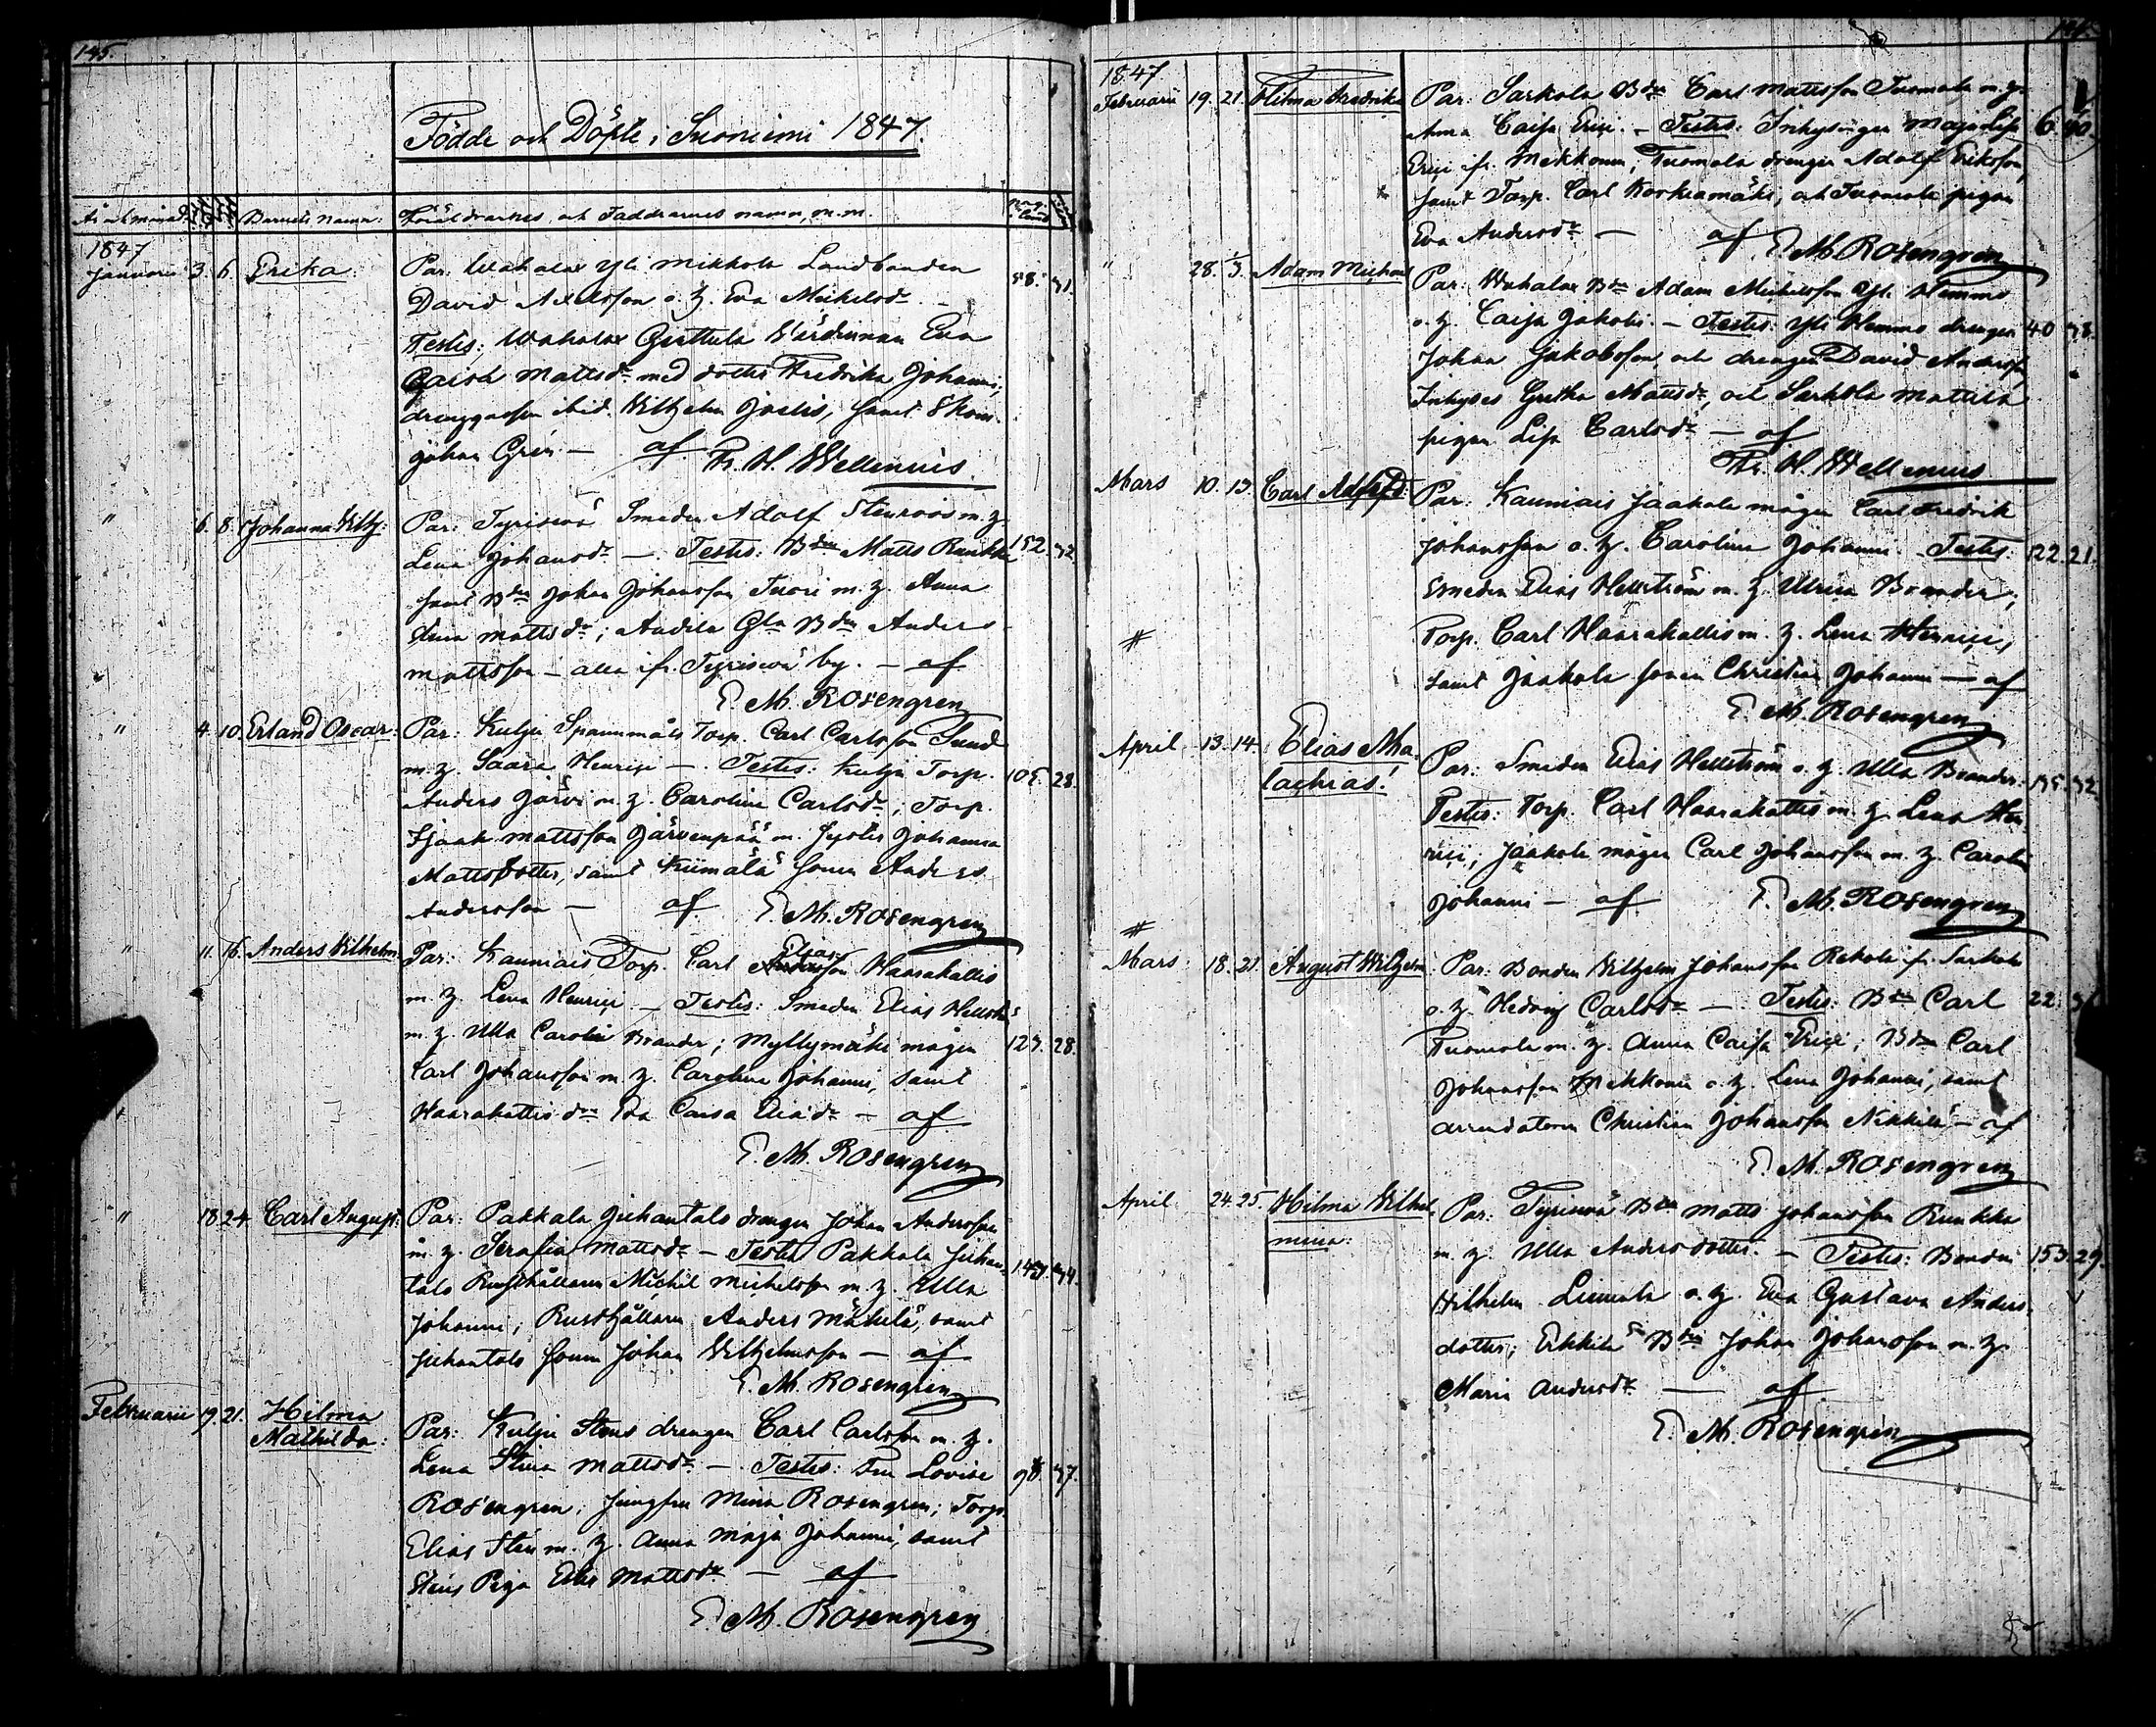 145.
Födde och Döpte i Suoniemi 1847.
År och månad. Barnets namn: Föräldrarnes, och Faddrarnes namn, m.m.
1847
Januarii 3. 6. Erika: Par: Wahalax Yli Mikkola Landbonden 58. 31.
David Axelsson o. h. Eva Michelsdr. –
Testis: Wahalax Gerttula Wärdinnan Eva
Caisa Mattsdr. med dotter Fredrika Johanni;
dränggossen ibid. Wilhelm Justis, samt Skom.
Johan Grén – af Fr. H. Wellenius
" 6. 8. Johanna Wilh: Par: Tyriswä Smeden Adolf Stenroos m. h.
Lena Johansdr. – Testis: Bden Matts Runkka 152. 32.
samt Bden Johan Johansson Tuori m. h. Anna
Stina Mattsdr; Anders
Mattsson – alla ifr. Tyriswä by. – af
E. M. Rosengren
" 4. 10. Erland Oscar: Par: Kulju Spannmåls Torp. Carl Carlsson Sund
m. h. Saara Henrici – Testis: Kulju Torp. 105. 28.
Anders Järvi m. h. Carolina Carlsdr; Torp.
Isaak Mattsson Järvenpää m. Johanna
Mattsdotter, samt Kiimälä sonen Anders
Andersson – af E. M. Rosengren
" 11. 16. Anders Wilhelm. Par: Kauniais Torp. Carl Eliasson Haarakallis
m. h. Lena Henrici – Testis: Smeden Elias Hellström
m. h. Ulla Carolin Brander; Myllymäki mågen 123. 28.
Carl Johansson m. h. Carolina Johanni, samt
Haarakallis dr. Eva Caisa Eliædr. – af
E. M. Rosengren
" 18. 24. Carl August: Par: Pakkala Juhantals drengen Johan Andersson
m. h. Serafia Mattsdr. – Testis Pakkala Juhan= 143. 34.
tals Rusthållaren Michel Michelsson m. h. Ulla
Johanni; Rusthållaren Anders Mäkelä, samt
Juhantals sonen Johan Wilhelmsson – af
E. M. Rosengren
Februarii 19. 21. Hilma Par: Kulju Stens drengen Carl Carlsson m. h.
Mathilda: Lena Stina Mattsdr. – Testis: Fru Lovise 98. 37.
Rosengren; Jungfru Mina Rosengren; Torp.
Elias Sten m. h. Anna Maja Johanni, samt
Stens Piga Mattsdr. – af
E. M. Rosengren
1847
Februarii 19. 21. Hilma Fredrika Par: Sarkola Bden Carl Mattsson Tuomola m. h.
Anna Caisa Erici. – Testis: Inhysingen Maja Lisa 6. 40.
Erici ifr. Mekkonen; Tuomola drengen Adolf Eriksson,
samt Torp. Carl Korkiamäki, och Tuomola pigan
Eva Andersdr. – af E. M. Rosengren
" 28. 1/3. Adam Michael Par: Wahalax Bden Adam Michelsson Yli Hemmo
o. h. Caisa Jakobi. – Testis: Yli Hemmo drengen 40 38.
Johan Jakobsson, och drengen David Andersson,
Inhyses Gretha Mattsdr, och Sarkola Mattila
pigan Lisa Carlsdr. – af
Fr. H. Wellenius
Mars 10. 13. Carl Par: Kauniais Jaakola mågen Carl Fredrik
Johansson o. h. Carolina Johanni. – Testis: 122. 21.
Smeden Elias Hellström m. h. Ulrica Brander;
# Torp. Carl Haarakallis m. h. Lena Henrici,
samt Jaakola sonen Christian Johanni – af
E. M. Rosengren
April 13. 14. Elias Ma= Par: Smeden Elias Hellström o. h. Ulla Brander. 135. 32.
lachias! Testis: Torp. Carl Haarakallis m. h. Lena Hen=
rici; Jaakola mågen Carl Johansson m. h. Carolin
Johanni – af E. M. Rosengren
#
Mars 18. 21. August Wilhelm. Par: Bonden Wilhelm Johansson Rekola ifr. Sarkola
o. h. Hedvig Carlsdr. – Testis: Bden Carl 22.
Tuomola m. h. Anna Caisa Erici; Bden Carl
Johansson Mekkonen o. h. Lena Johanni, samt
arrendatorn Christian Johansson Nikkilä – af
E. M. Rosengren
April 24. 25. Hilma Wilhel= Par: Tyriswä Bden Matts Johansson Runkka
mina: m. h. Ulla Andersdotter. – Testis: Bonden 153. 29.
Wilhelm Liuniala o. h. Eva Gustava Anders=
dotter; Erkkilä Bden Johan Johansson m. h.
Maria Andersdr. – af
E. M. Rosengren